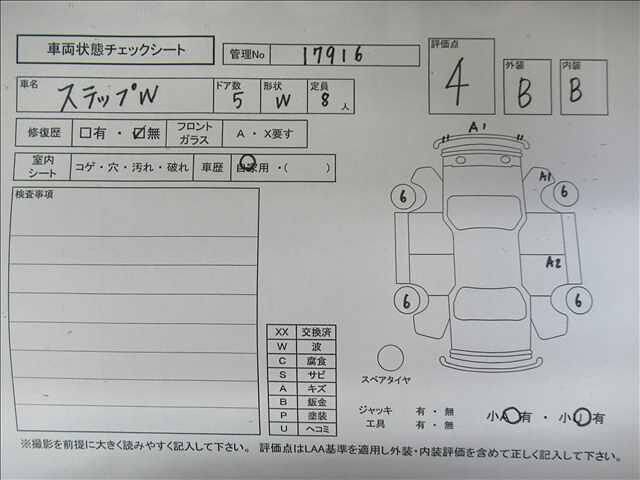 車両状態チェックシート
管理No 17916
評価点 4
外装 B
内装 B
車名 ステップW
ドア数 5
形状 W
定員 8 人
修復歴 □有 ・ ☑無
フロントガラス A ・ X要す
室内シート コゲ・穴・汚れ・破れ
車歴 自家用 ・( )
検査事項
A1
A1
6
6
A2
6
6
XX 交換済
W 波
C 腐食
S サビ
A キズ
B 鈑金
P 塗装
U ヘコミ
スペアタイヤ
ジャッキ 有 ・ 無
工具 有 ・ 無
小A有 ・ 小U有
※撮影を前提に大きく読みやすく記入して下さい。 評価点はLAA基準を適用し外装・内装評価を含めて正しく記入して下さい。